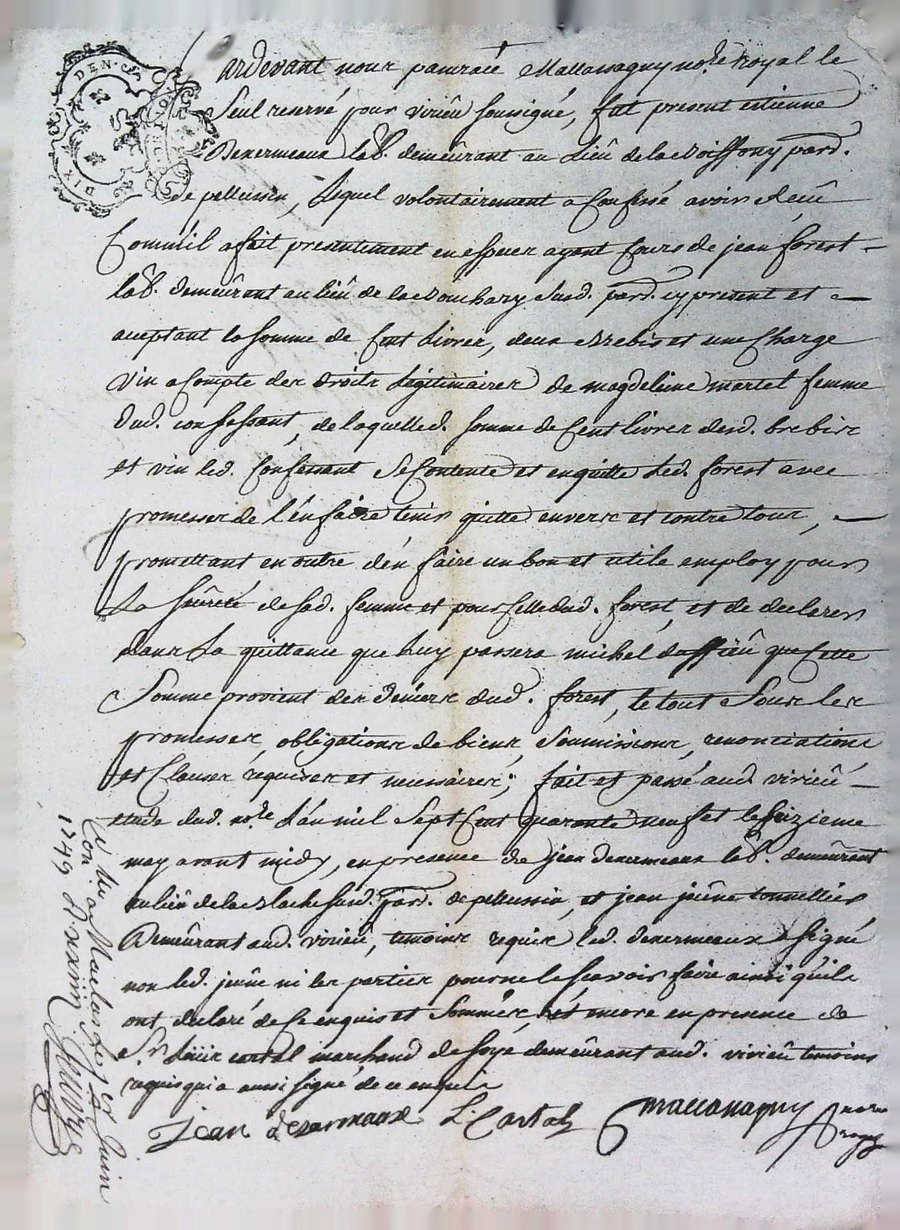 DIX DEN.
ardevant nous pancrace Mallanaguy no.re Royal le
Seul reservé pour virieu soussigné, fut present estienne
Denermeaux lab.r demeurant au lieu de la Voiffony parr.
de pellussin, Lequel volontairement a Confessé avoir Receu
Comme il a fait presentement en espece ayant Cours de jean forest
lab.r demeurant au lieu de la susd. parr. cy present et
aceptant la somme de Cent Livres, deux Brebis et une Charge
Vin a Compte des droits Légitimaires de magdeleine martel femme
dud. confessant, de laquelle d. somme de Cent livres desd. brebis
et vin led. Confessant Se Contente et en quitte led. forest avec
promesse de l'en faire tenir quitte envers et contre tous,
promettant en outre d'en faire un bon et utile employ pour
La sûreté de sad. femme et pour celle dud. forest, et de declarer
dans La quittance que Luy passera michel que Cette
Somme provient des deniers dud. forest, le tout Sous les
promesses, obligations de biens, soumissions, renonciations
et Clauses requises et necessaires; fait et passé aud. virieu
étude dud. no.re L'an mil Sept Cent quarante neuf et le seizieme
may avant midy, en presence de jean denermeaux lab.r demeurant
au lieu de la susd. parr. de pellussin, et jean jeune tonnellier
Demeurant aud. virieu, temoins requis led. denermeaux a signé
non led. jeune ni les parties pour ne le scavoir faire ainsi qu'ils
ont declaré de ce enquis et sommés, et encore en presence de
S.r Louis cartal marchand de soye demeurant aud. virieu temoins
requis qui a aussi signé de ce enquis
Jean denarmaux L. Cartal Mallanaguy
Juin
1749